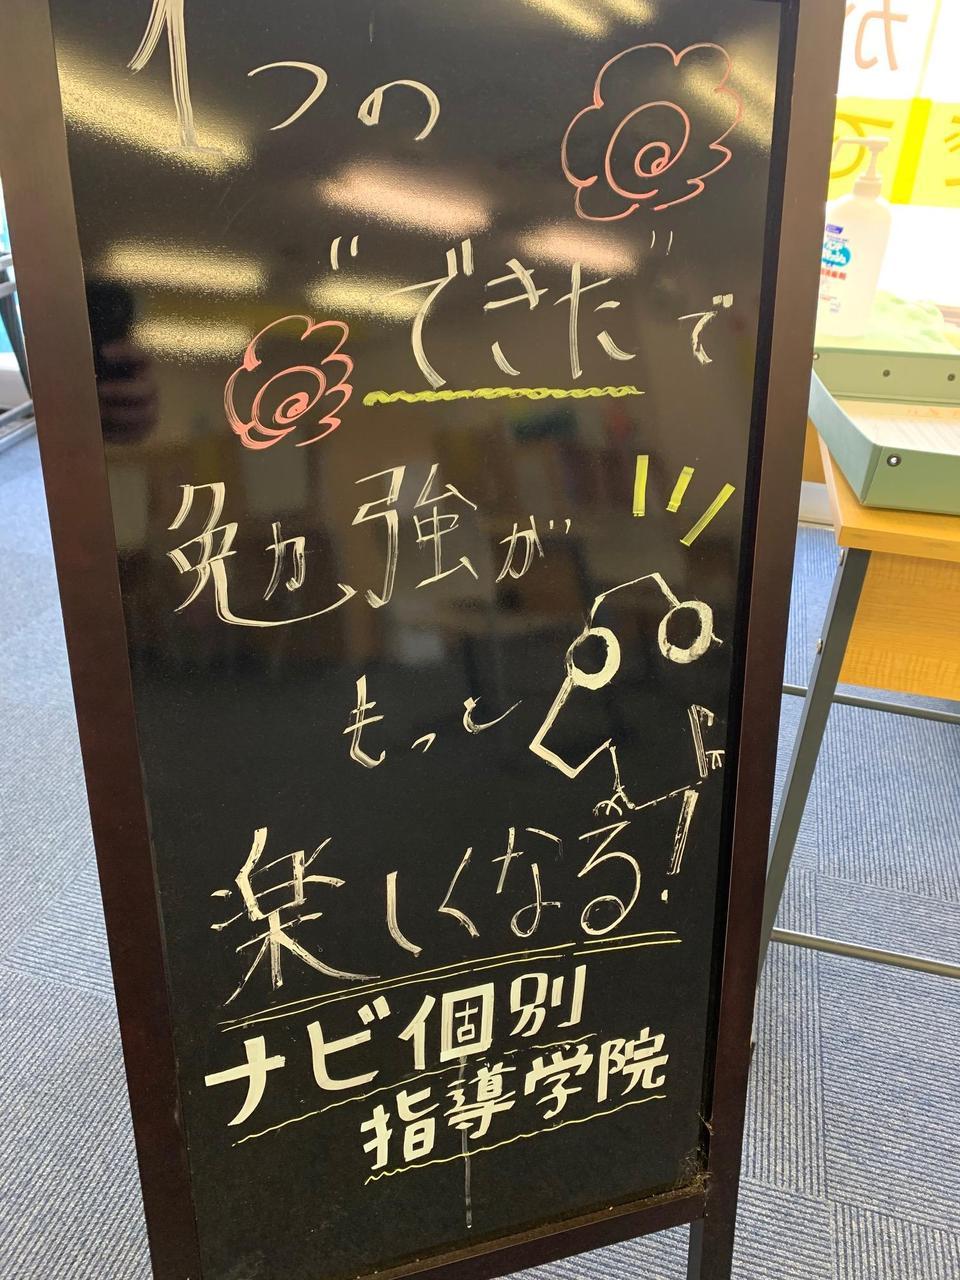 1つの
"できた"で
勉強が
もっと
楽しくなる!
ナビ個別
指導学院